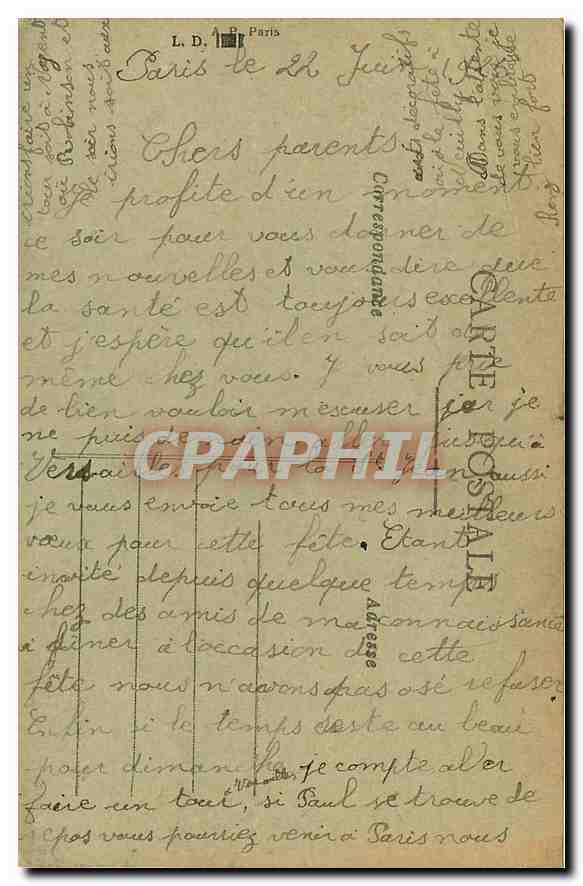 A. P. Paris
L. D.
Paris le 22 Juin
Chers parents
Je profite d'un moment
ce soir pour vous donner de
mes nouvelles et vous dire que
la santé est toujours excellente
et j'espère qu'il en soit de
même chez vous. J vous prie
de bien vouloir m'excuser car je
ne puis demain aller jusqu'à
Versailles pour la St Jean aussi
je vous envoie tous mes meilleurs
vœux pour cette fête. Etant
invité depuis quelque temps
chez des amis de ma connaissance
à diner à l'occasion de cette
fête nous n'avons pas osé refuser
Enfin si le temps reste au beau
pour dimanche je compte aller
faire un tour à Versailles, si Paul se trouve de
repos vous pourriez venir à Paris nous
irions faire un
tour soit à Nogent
ou Robinson et
le soir nous
irions soit aux
arts décoratifs
soit à la fête à
Neuilly
Dans l'attente
de vous voir je
vous embrasse
bien fort
CARTE POSTALE
Correspondance
Adresse
CPAPHIL